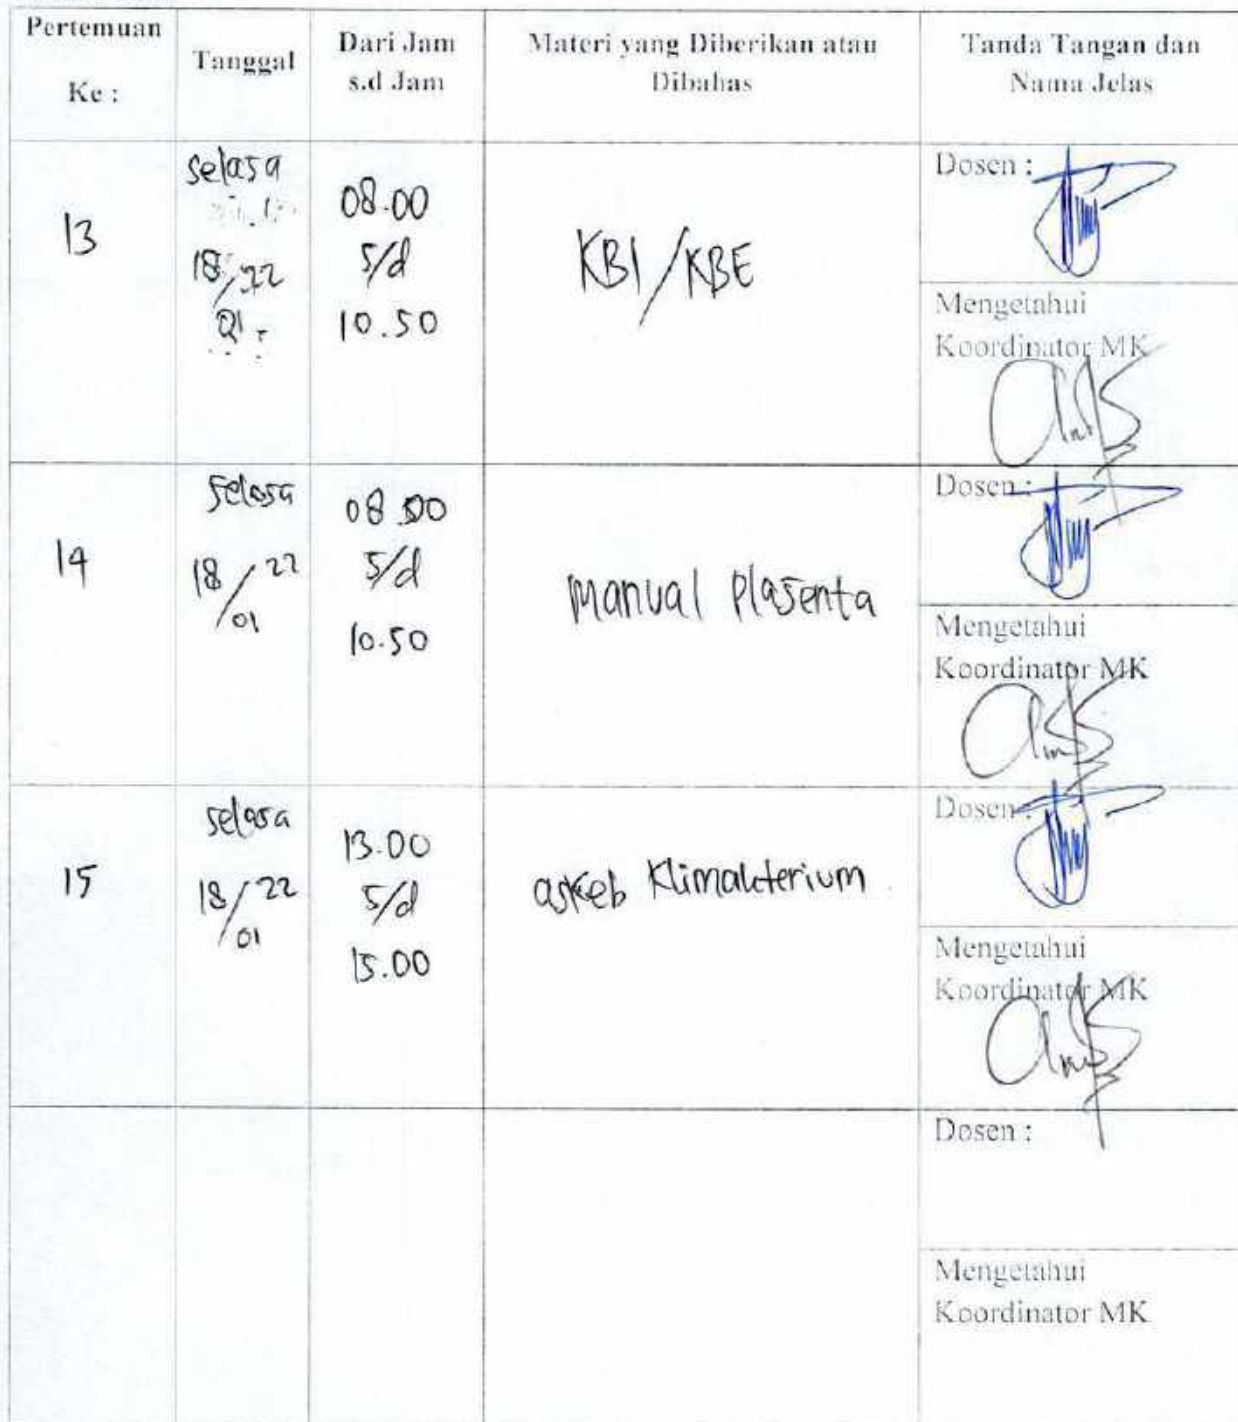 Pertemuan
Ke :
Tanggal
Dari Jam
s.d Jam
Materi yang Diberikan atau
Dibahas
Tanda Tangan dan
Nama Jelas
13
selasa
18/22
01
08.00
s/d
10.50
KBI/KBE
Dosen :
Mengetahui
Koordinator MK
14
selasa
18/22
01
08.00
s/d
10.50
Manual Plasenta
Dosen :
Mengetahui
Koordinator MK
15
selasa
18/22
01
13.00
s/d
15.00
askeb Klimakterium
Dosen :
Mengetahui
Koordinator MK
Dosen :
Mengetahui
Koordinator MK